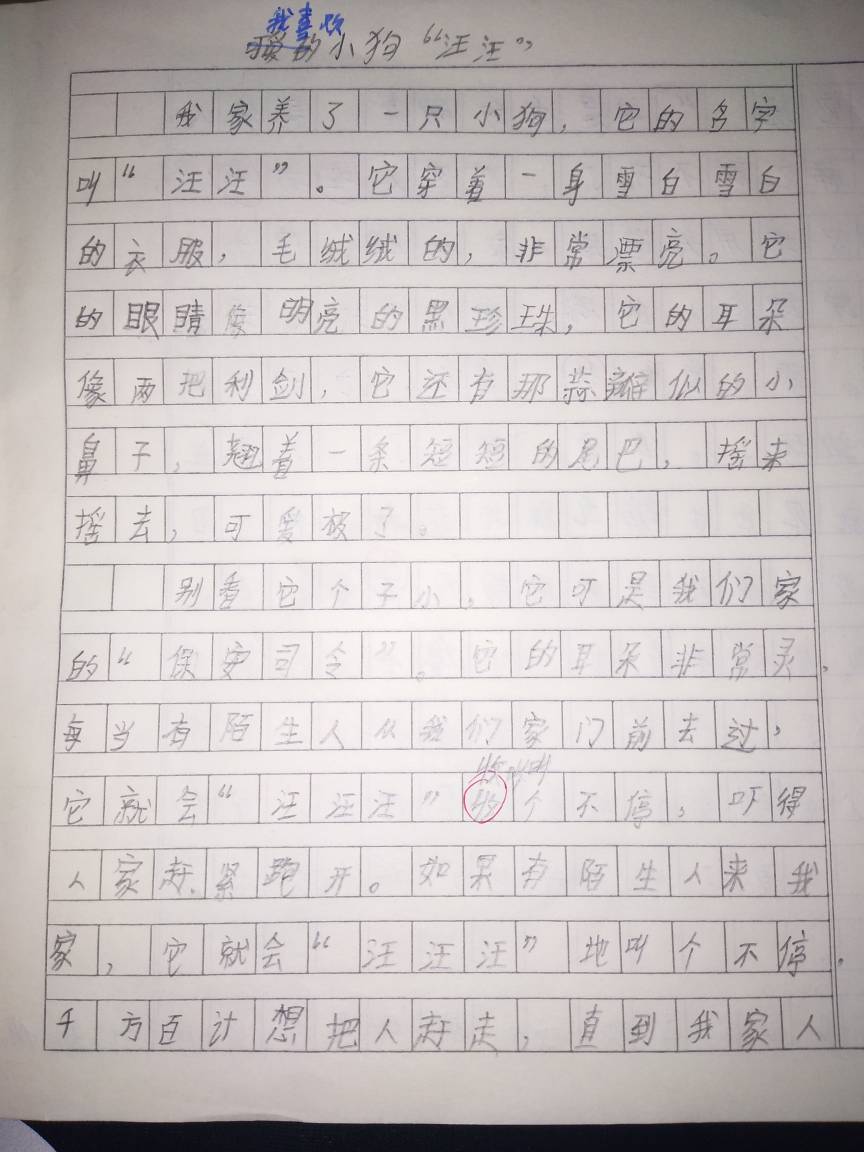 我喜欢
可爱的小狗“汪汪”
我家养了一只小狗，它的名字
叫“汪汪”。它穿着一身雪白雪白
的衣服，毛绒绒的，非常漂亮。它
的眼睛像明亮的黑珍珠，它的耳朵
像两把利剑，它还有那蒜瓣似的小
鼻子，翘着一条短短的尾巴，摇来
摇去，可爱极了。
别看它个子小，它可是我们家
的“保安司令”。它的耳朵非常灵，
每当有陌生人从我们家门前去过，
它就会“汪汪汪”个不停，吓得
人家赶紧跑开。如果有陌生人来我
家，它就会“汪汪汪”地叫个不停。
千方百计想把人赶走，直到我家人